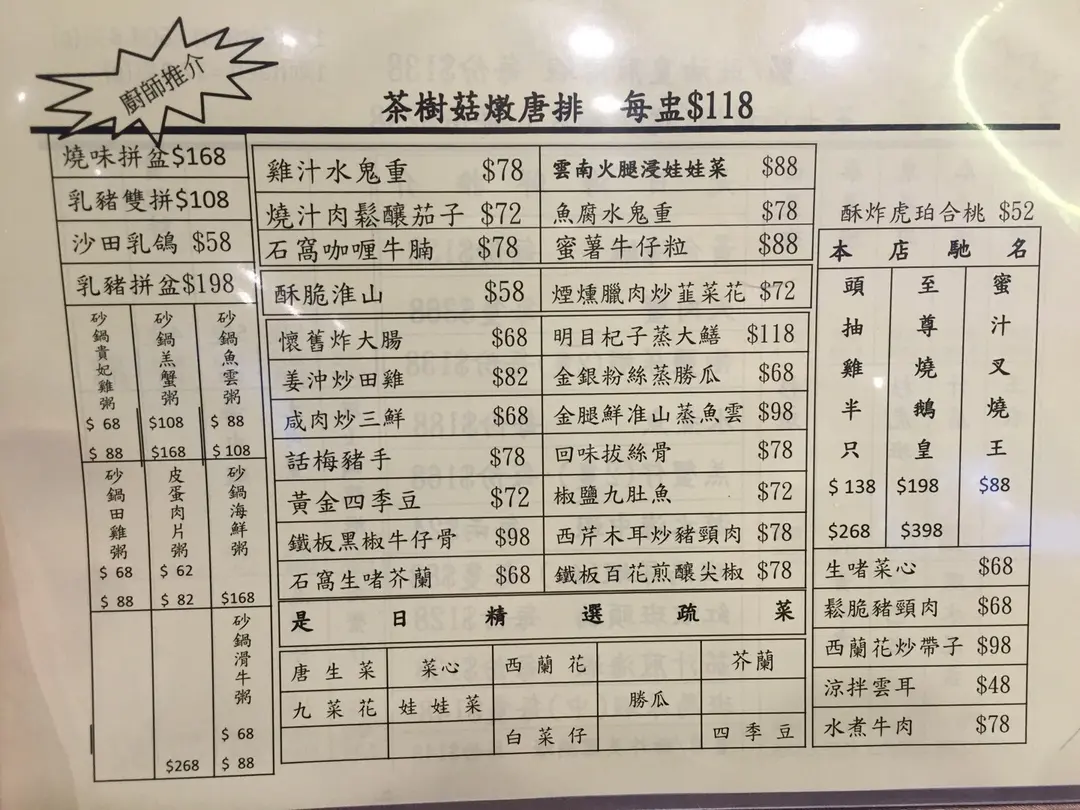 廚師推介
茶樹菇燉唐排 每盅$118
燒味拼盆$168
乳豬雙拼$108
沙田乳鴿 $58
乳豬拼盆$198
砂鍋貴妃雞粥
$ 68
$ 88
砂鍋羔蟹粥
$108
$168
砂鍋魚雲粥
$ 88
$ 108
砂鍋田雞粥
$ 68
$ 88
皮蛋肉片粥
$ 62
$ 82
砂鍋海鮮粥
$168
$268
砂鍋滑牛粥
$ 68
$ 88
雞汁水鬼重 $78
雲南火腿浸娃娃菜 $88
燒汁肉鬆釀茄子 $72
魚腐水鬼重 $78
石窩咖喱牛腩 $78
蜜薯牛仔粒 $88
酥脆淮山 $58
煙燻臘肉炒韮菜花 $72
懷舊炸大腸 $68
明目杞子蒸大鱔 $118
姜沖炒田雞 $82
金銀粉絲蒸勝瓜 $68
咸肉炒三鮮 $68
金腿鮮淮山蒸魚雲 $98
話梅豬手 $78
回味拔絲骨 $78
黃金四季豆 $72
椒鹽九肚魚 $72
鐵板黑椒牛仔骨 $98
西芹木耳炒豬頸肉 $78
石窩生啫芥蘭 $68
鐵板百花煎釀尖椒 $78
是日精選疏菜
唐生菜 菜心 西蘭花 芥蘭
九菜花 娃娃菜 勝瓜
白菜仔 四季豆
酥炸虎珀合桃 $52
本店馳名
頭抽雞半只
$ 138
$268
至尊燒鵝皇
$198
$398
蜜汁叉燒王
$88
生啫菜心 $68
鬆脆豬頸肉 $68
西蘭花炒帶子 $98
涼拌雲耳 $48
水煮牛肉 $78